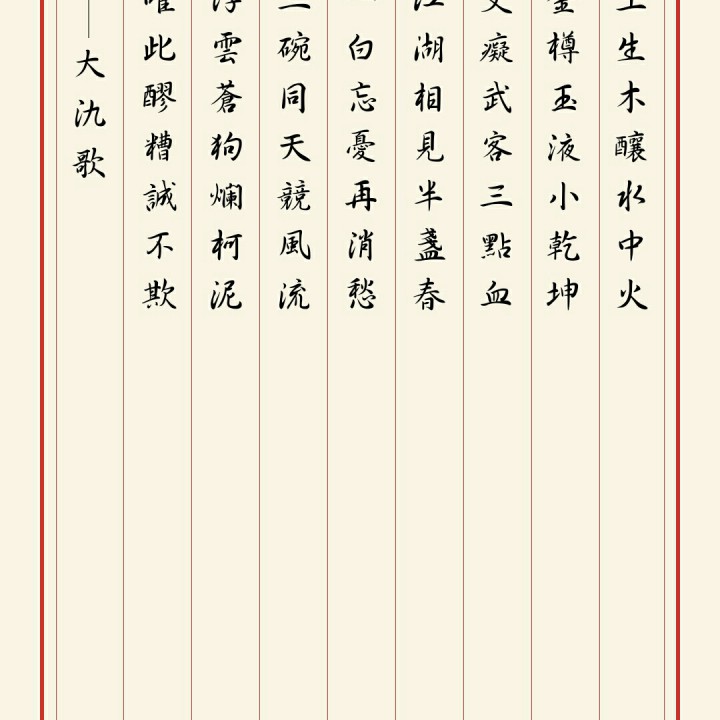 土生木釀水中火
金樽玉液小乾坤
文癡武客三點血
江湖相見半盞春
一白忘憂再消愁
三碗同天競風流
浮雲蒼狗爛柯泥
唯此醪糟誠不欺
——大氿歌